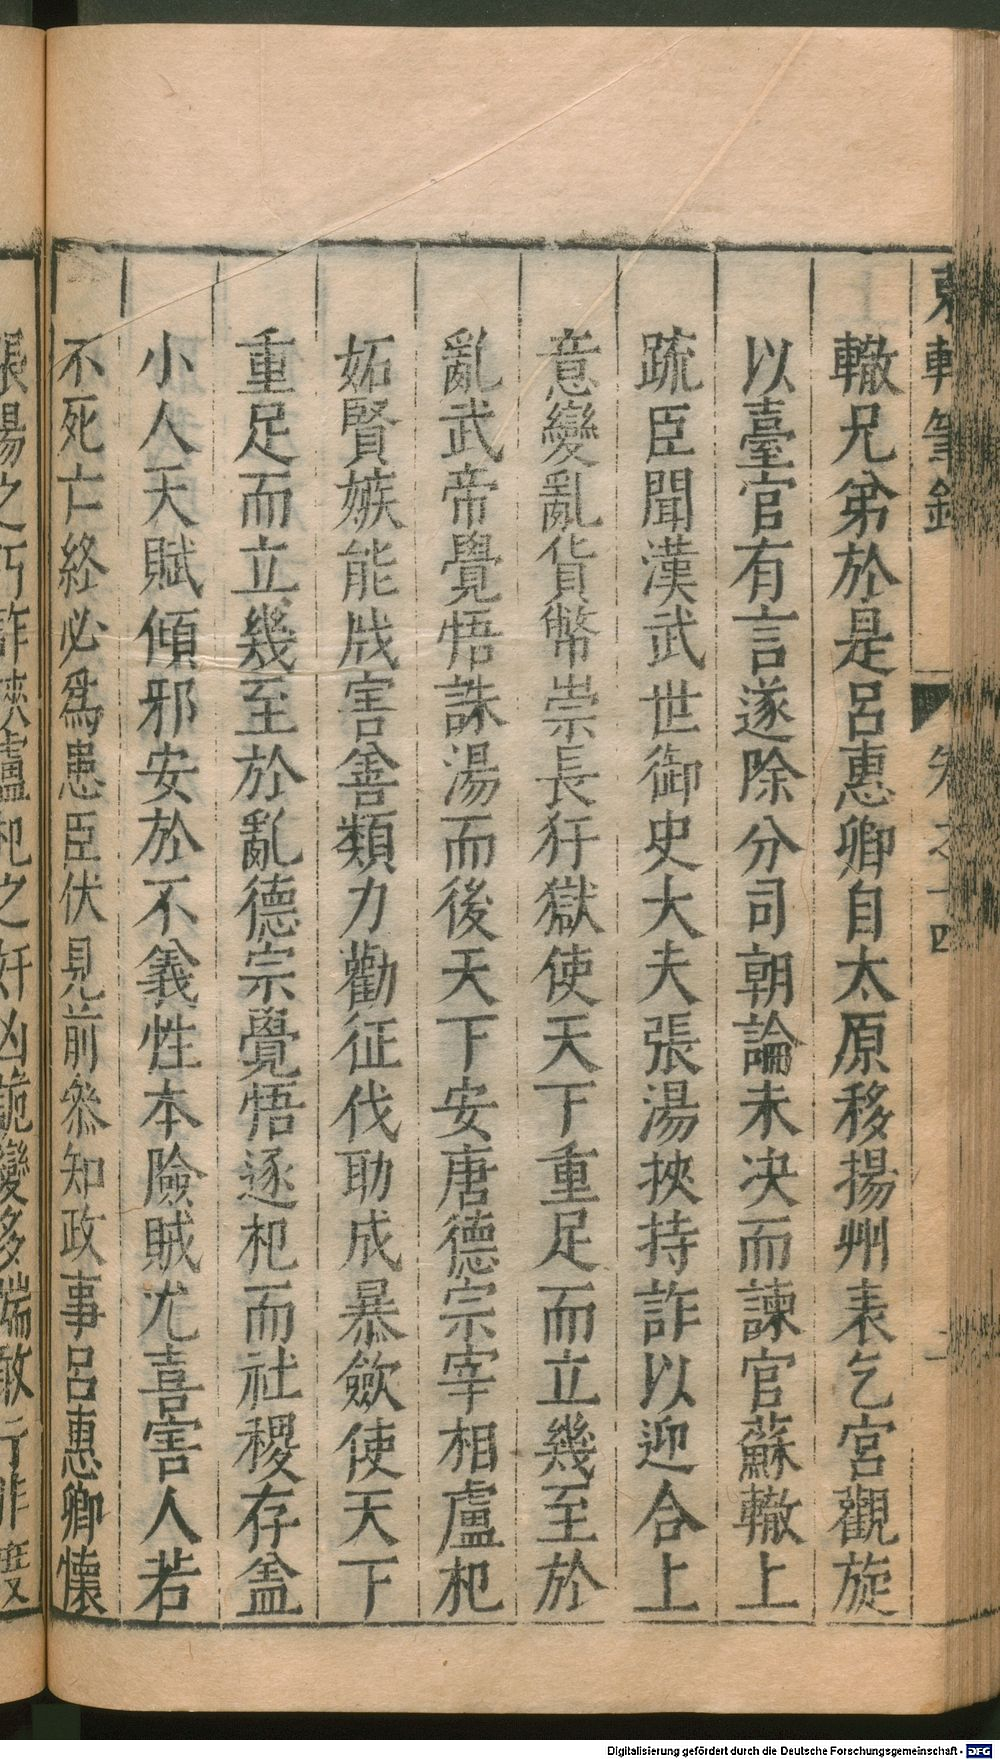 東軒筆錄
卷之十四
轍兄弟於是呂惠卿自太原移揚州表乞宮觀旋
以臺官有言遂除分司朝論未決而諫官蘇轍上
疏臣聞漢武世御史大夫張湯挾持詐以迎合上
意變亂貨幣崇長犴獄使天下重足而立幾至於
亂武帝覺悟誅湯而後天下安唐德宗宰相盧杞
妬賢嫉能戕害善類力勸征伐助成暴歛使天下
重足而立幾至於亂德宗覺悟逐杞而社稷存盖
小人天賦傾邪安於不義性本險賊尤喜害人若
不死亡終必為患臣伏見前叅知政事呂惠卿懷
張湯之巧詐挾盧杞之奸凶詭變多端敢行非度又
Digitalisierung gefördert durch die Deutsche Forschungsgemeinschaft - DFG